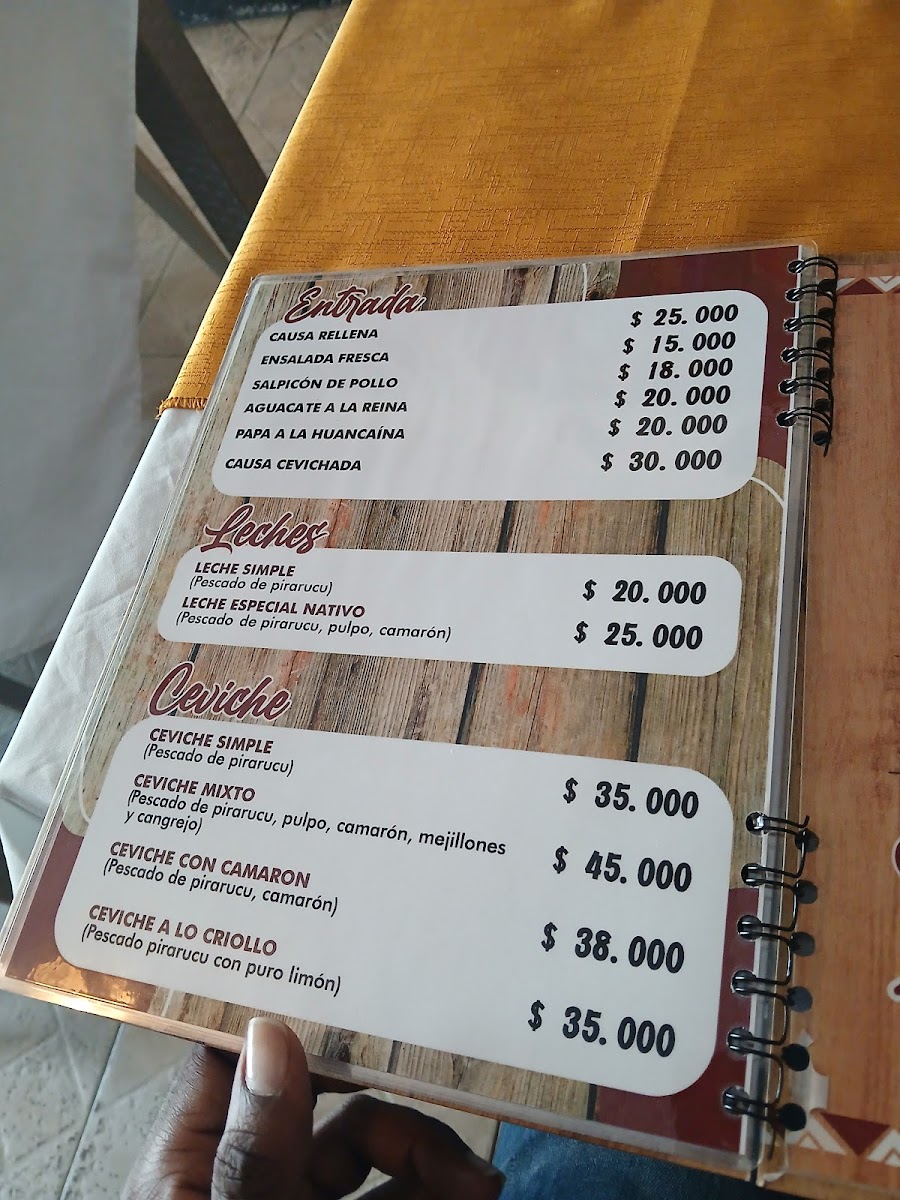 Entrada
CAUSA RELLENA $ 25. 000
ENSALADA FRESCA $ 15. 000
SALPICÓN DE POLLO $ 18. 000
AGUACATE A LA REINA $ 20. 000
PAPA A LA HUANCAÍNA $ 20. 000
CAUSA CEVICHADA $ 30. 000
Leches
LECHE SIMPLE
(Pescado de pirarucu) $ 20. 000
LECHE ESPECIAL NATIVO
(Pescado de pirarucu, pulpo, camarón) $ 25. 000
Ceviche
CEVICHE SIMPLE
(Pescado de pirarucu) $ 35. 000
CEVICHE MIXTO
(Pescado de pirarucu, pulpo, camarón, mejillones
y cangrejo) $ 45. 000
CEVICHE CON CAMARON
(Pescado de pirarucu, camarón) $ 38. 000
CEVICHE A LO CRIOLLO
(Pescado pirarucu con puro limón) $ 35. 000